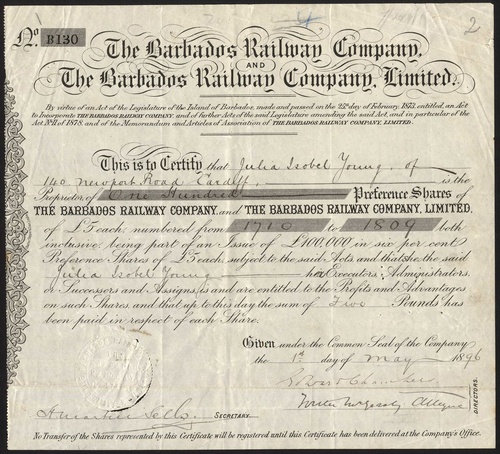 2
No. B130
The Barbados Railway Company,
AND
The Barbados Railway Company, Limited.
By virtue of an Act of the Legislature of the Island of Barbados, made and passed on the 25th day of February, 1873, entitled, an Act
to Incorporate THE BARBADOS RAILWAY COMPANY, and of further Acts of the said Legislature amending the said Act, and in particular of the
Act No. 11 of 1878, and of the Memorandum and Articles of Association of THE BARBADOS RAILWAY COMPANY, LIMITED.
This is to Certify that Julia Isobel Young of
140 Newport Road Cardiff is the
Proprietor of One Hundred Preference Shares of
THE BARBADOS RAILWAY COMPANY, and THE BARBADOS RAILWAY COMPANY, LIMITED,
of £5 each, numbered from 1710 to 1809 both
inclusive being part of an Issue of £100,000 in six per cent
Preference Shares of £5 each, subject to the said Acts and that she the said
Julia Isobel Young her Executors, Administrators,
or Successors and Assigns, is and are entitled to the Profits and Advantages
on such Shares and that up to this day the sum of Five Pounds has
been paid in respect of each Share.
Given under the Common Seal of the Company
the 1st day of May 1896
Edward Chambers
Alleyne
DIRECTORS.
SECRETARY.
No Transfer of the Shares represented by this Certificate will be registered until this Certificate has been delivered at the Company's Office.